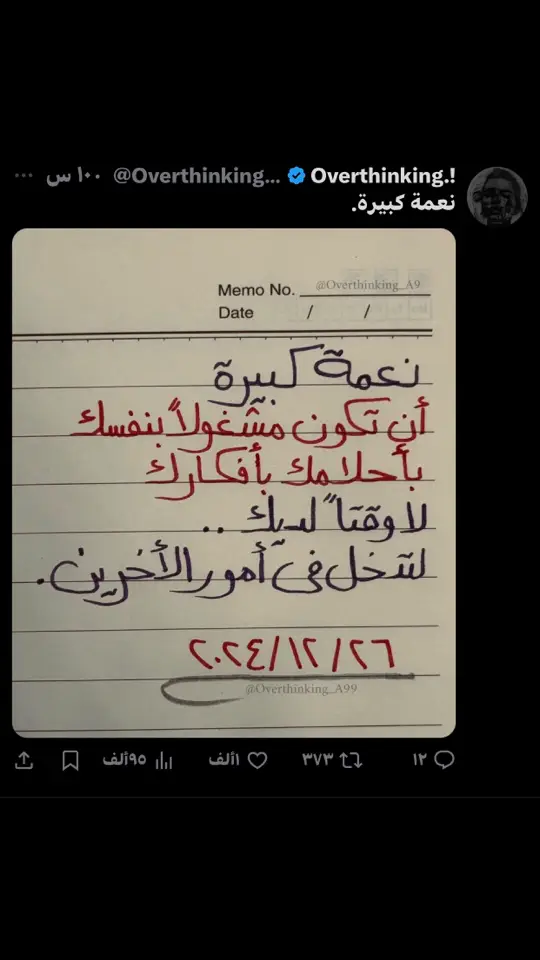 Overthinking.! @Overthinking... ١٠٠ س
نعمة كبيرة.
Memo No. @Overthinking_A9
Date / /
نعمة كبيرة
أن تكون مشغولاً بنفسك
بأحلامك بأفكارك
لا وقتاً لديك ..
لتدخل في أمور الأخرين.
٢٠٢٤/١٢/٢٦
@Overthinking_A99
١٢ ٣٧٣ ١ألف ٩٥ألف